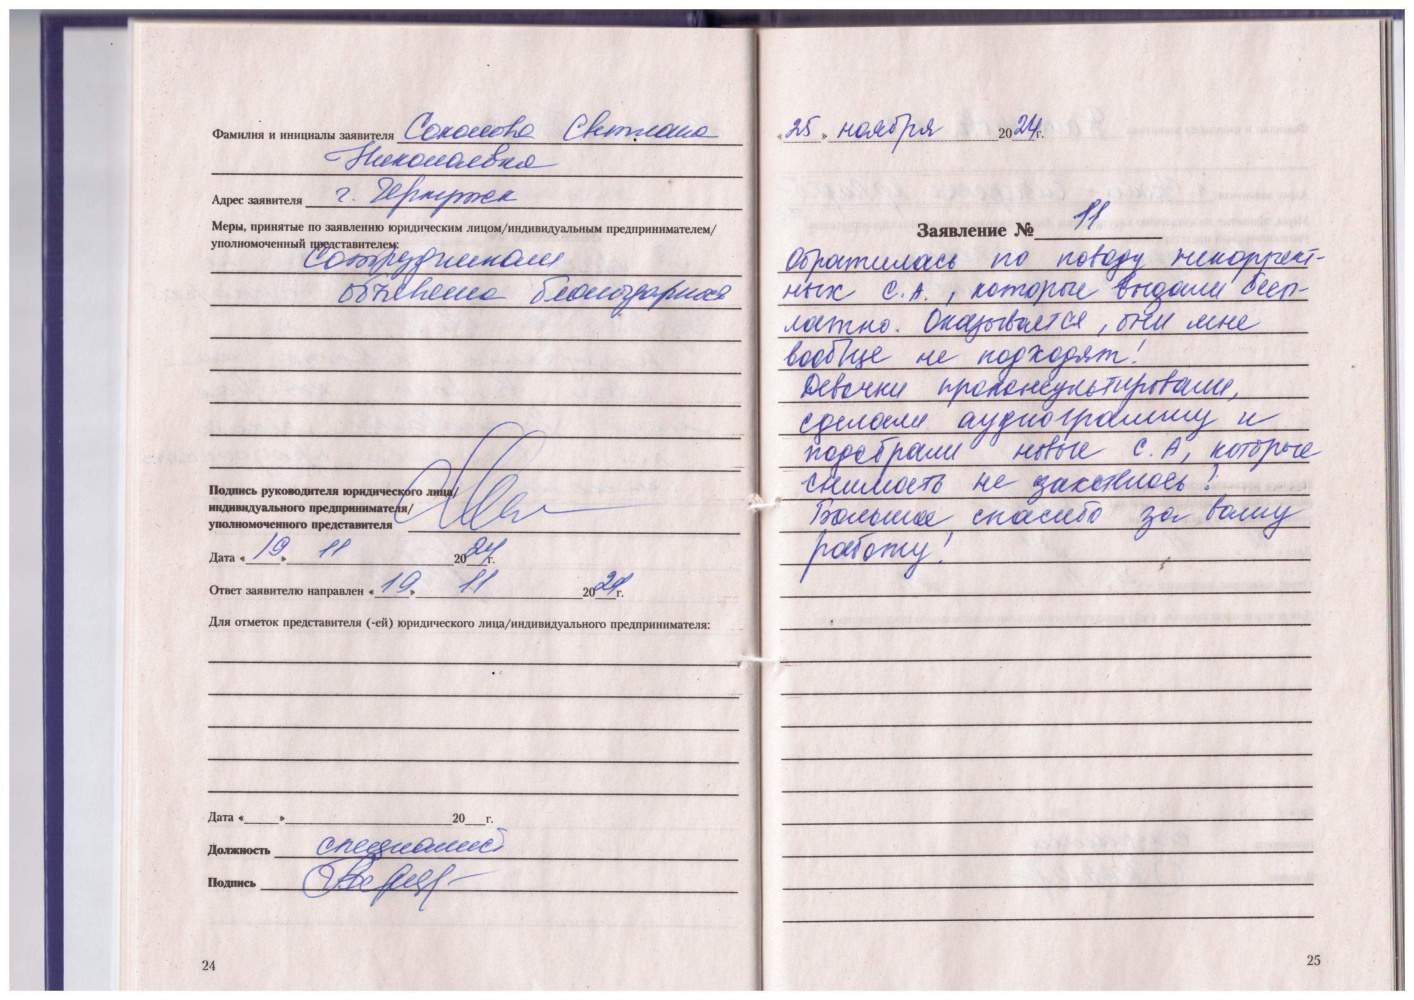 Фамилия и инициалы заявителя Соколова Светлана
Николаевна
Адрес заявителя г.
Меры, принятые по заявлению юридическим лицом/индивидуальным предпринимателем/
уполномоченный представителем:
Сотрудникам
объявлена благодарность
Подпись руководителя юридического лица/
индивидуального предпринимателя/
уполномоченного представителя
Дата «19» 11 2024г.
Ответ заявителю направлен «19» 11 2024г.
Для отметок представителя (-ей) юридического лица/индивидуального предпринимателя:
Дата «____»____ 20___г.
Должность специалист
Подпись
24
«25» ноября 2024г.
Заявление № 11
Обратилась по поводу некоррект-
ных С.А., которые выдали бесп-
латно. Оказывается, они мне
вообще не подходят!
Девочки проконсультировали,
сделали аудиограмму и
подобрали новые С.А, которые
снимать не захотелось!
Большое спасибо за вашу
работу!
25